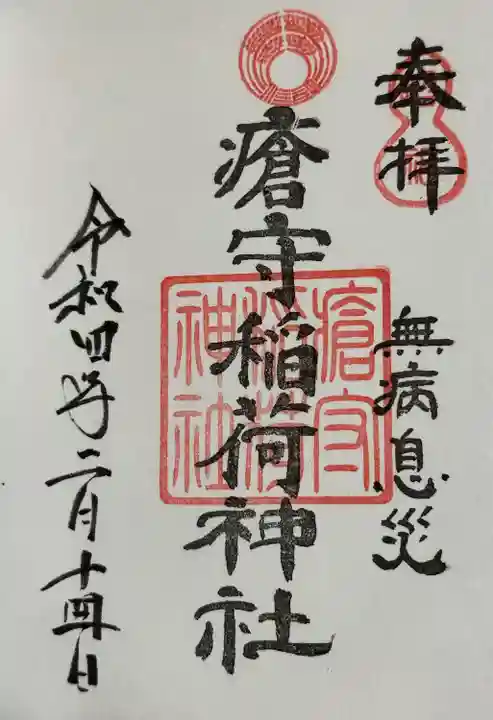 奉拝
無病息災
瘡守稲荷神社
瘡守稲荷神社
令和四年二月十四日